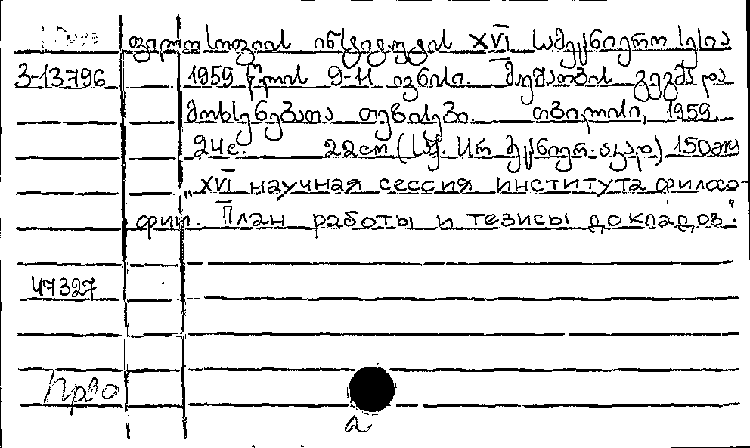 ფილოსოფიის ინსტიტუტის XVI სამეცნიერო სესია
3-13796 1959 წლის 9-11 ივნისი. მუშაობის გეგმა და
მოხსენებათა თეზისები. თბილისი, 1959.
24с. 22ст. (საქ. სსრ მეცნიერ. აკად) 150
„XVI научная сессия института филосо-
фии. План работы и тезисы докладов".
47327
а